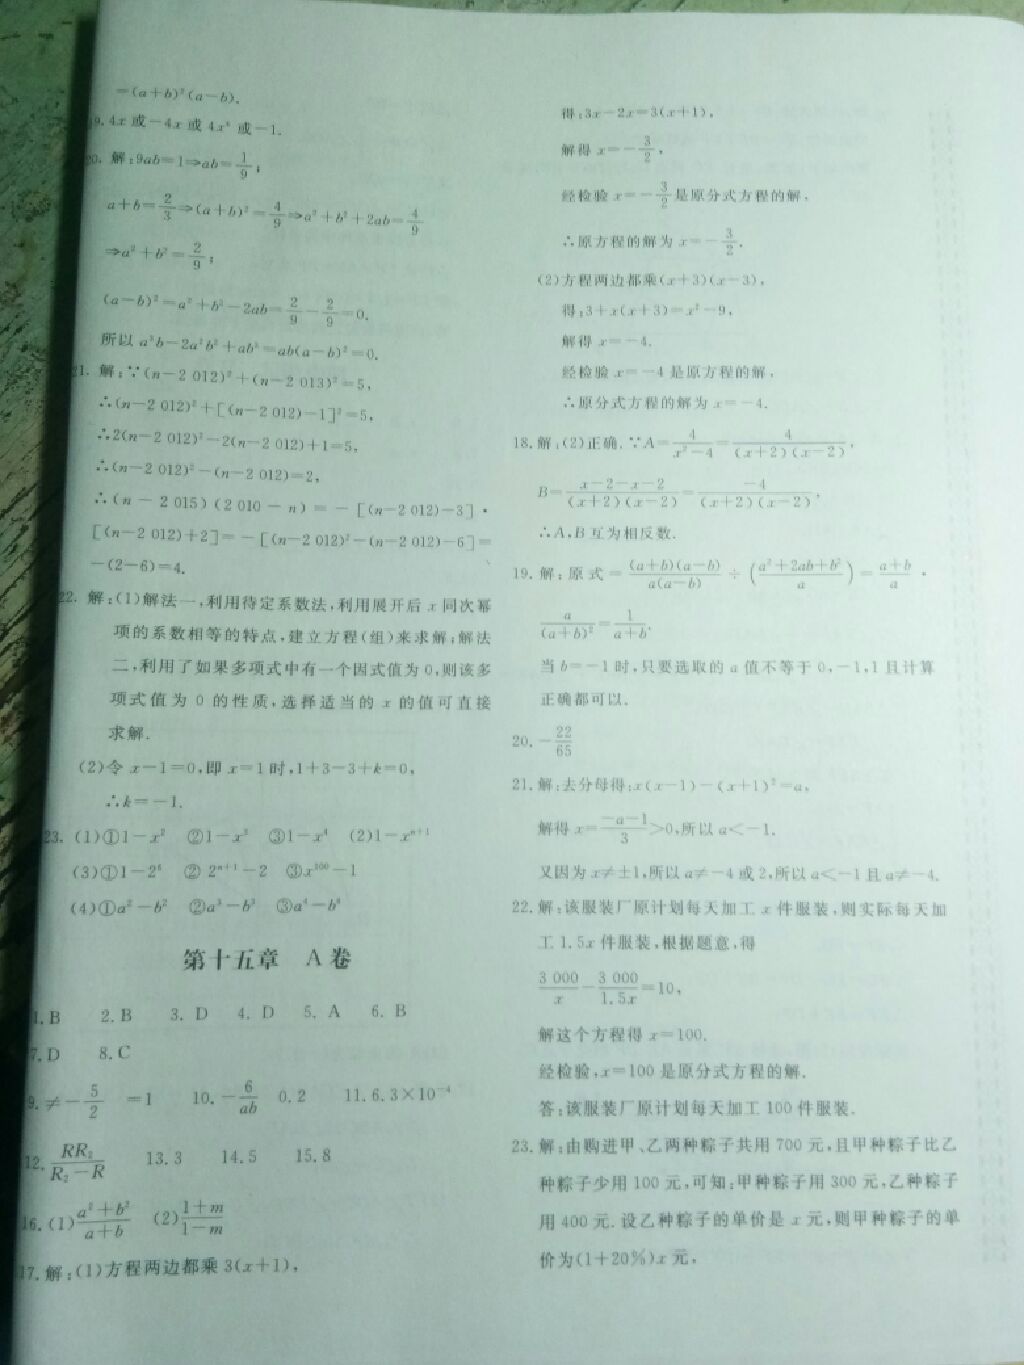 =(a+b)²(a-b).
19. 4x 或-4x 或 4x⁴ 或-1.
20. 解:9ab=1⇒ab=1/9;
a+b=2/3⇒(a+b)²=4/9⇒a²+b²+2ab=4/9
⇒a²+b²=2/9;
(a-b)²=a²+b²-2ab=2/9-2/9=0.
所以 a³b-2a²b²+ab³=ab(a-b)²=0.
21. 解:∵(n-2 012)²+(n-2 013)²=5,
∴(n-2 012)²+[(n-2 012)-1]²=5,
∴2(n-2 012)²-2(n-2 012)+1=5,
∴(n-2 012)²-(n-2 012)=2,
∴(n-2 015)(2 010-n)=-[(n-2 012)-3]·
[(n-2 012)+2]=-[(n-2 012)²-(n-2 012)-6]=
-(2-6)=4.
22. 解:(1)解法一,利用待定系数法,利用展开后 x 同次幂
项的系数相等的特点,建立方程(组)来求解;解法
二,利用了如果多项式中有一个因式值为0,则该多
项式值为 0 的性质,选择适当的 x 的值可直接
求解.
(2)令 x-1=0,即 x=1 时,1+3-3+k=0,
∴k=-1.
23. (1)①1-x² ②1-x³ ③1-x⁴ (2)1-xⁿ⁺¹
(3)①1-2⁶ ② 2ⁿ⁺¹-2 ③x¹⁰⁰-1
(4)①a²-b² ②a³-b³ ③a⁴-b⁴
第十五章 A卷
1. B 2. B 3. D 4. D 5. A 6. B
7. D 8. C
9. ≠-5/2 =1 10. -6/ab 0.2 11. 6.3×10⁻⁴
12. RR₂/(R₂-R) 13. 3 14. 5 15. 8
16. (1)(a²+b²)/(a+b) (2)(1+m)/(1-m)
17. 解:(1)方程两边都乘 3(x+1),
得:3x-2x=3(x+1),
解得 x=-3/2,
经检验 x=-3/2是原分式方程的解,
∴原方程的解为 x=-3/2.
(2)方程两边都乘(x+3)(x-3),
得:3+x(x+3)=x²-9,
解得 x=-4.
经检验 x=-4 是原方程的解,
∴原分式方程的解为 x=-4.
18. 解:(2)正确.∵A=4/(x²-4)=4/((x+2)(x-2)),
B=(x-2-x-2)/((x+2)(x-2))=-4/((x+2)(x-2)),
∴A,B互为相反数.
19. 解:原式=(a+b)(a-b)/(a(a-b))÷((a²+2ab+b²)/a)=(a+b)/a·
a/(a+b)²=1/(a+b).
当 b=-1 时,只要选取的 a 值不等于 0,-1,1 且计算
正确都可以.
20. -22/65
21. 解:去分母得:x(x-1)-(x+1)²=a,
解得 x=(-a-1)/3>0,所以 a<-1.
又因为 x≠±1,所以 a≠-4 或 2,所以 a<-1 且 a≠-4.
22. 解:该服装厂原计划每天加工 x 件服装,则实际每天加
工 1.5x 件服装,根据题意,得
3 000/x-3 000/1.5x=10,
解这个方程得 x=100.
经检验,x=100 是原分式方程的解.
答:该服装厂原计划每天加工 100 件服装.
23. 解:由购进甲、乙两种粽子共用 700 元,且甲种粽子比乙
种粽子少用 100 元,可知:甲种粽子用 300 元,乙种粽子
用 400 元.设乙种粽子的单价是 x 元,则甲种粽子的单
价为(1+20%)x 元,